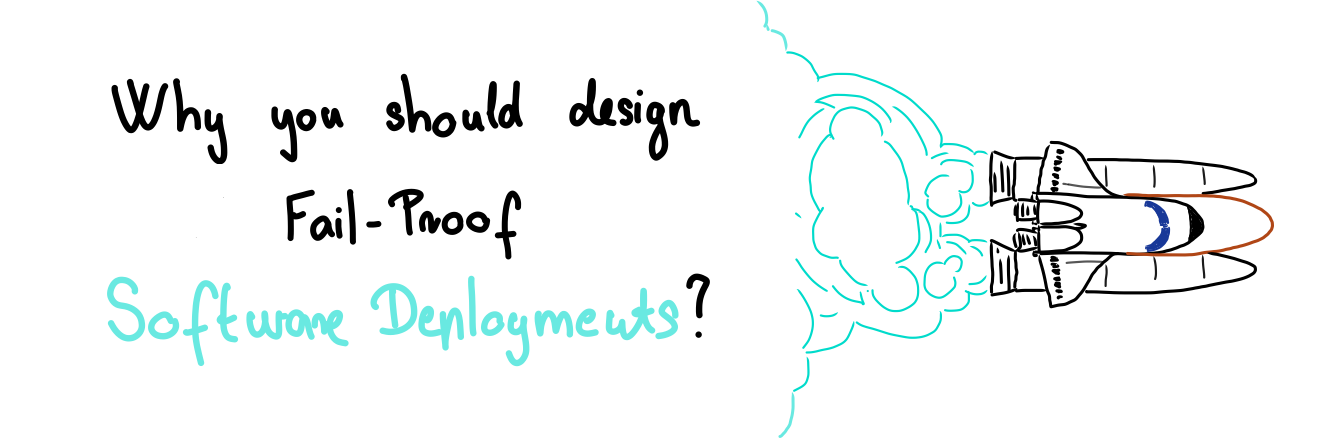 Why you should design
Fail-Proof
Software Deployments?